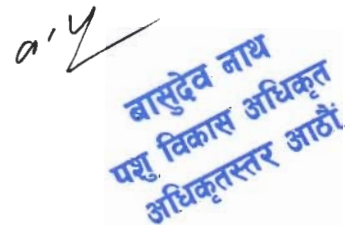 बासुदेव नाथ
पशु विकास अधिकृत
अधिकृतस्तर आठौं